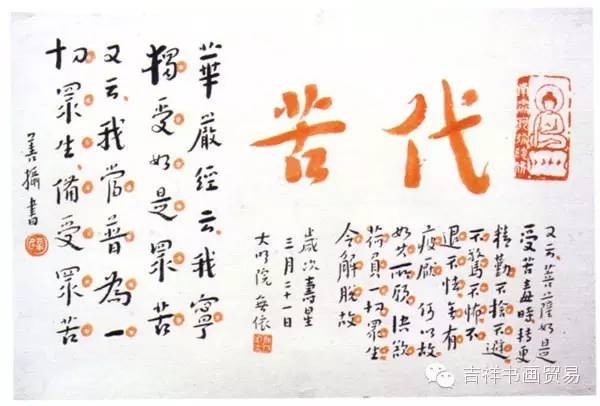 代苦
華嚴經云我寧
獨受如是眾苦
又云我當普為一
切眾生備受眾苦
善攝書
又云菩薩如是
受苦毒時轉更
精勤不捨不避
不驚不怖不
退不怯無有
疲厭何以故
如其所願決欲
荷負一切眾生
令解脫故
歲次壽星
三月二十一日
大明院無依
吉祥书画贸易